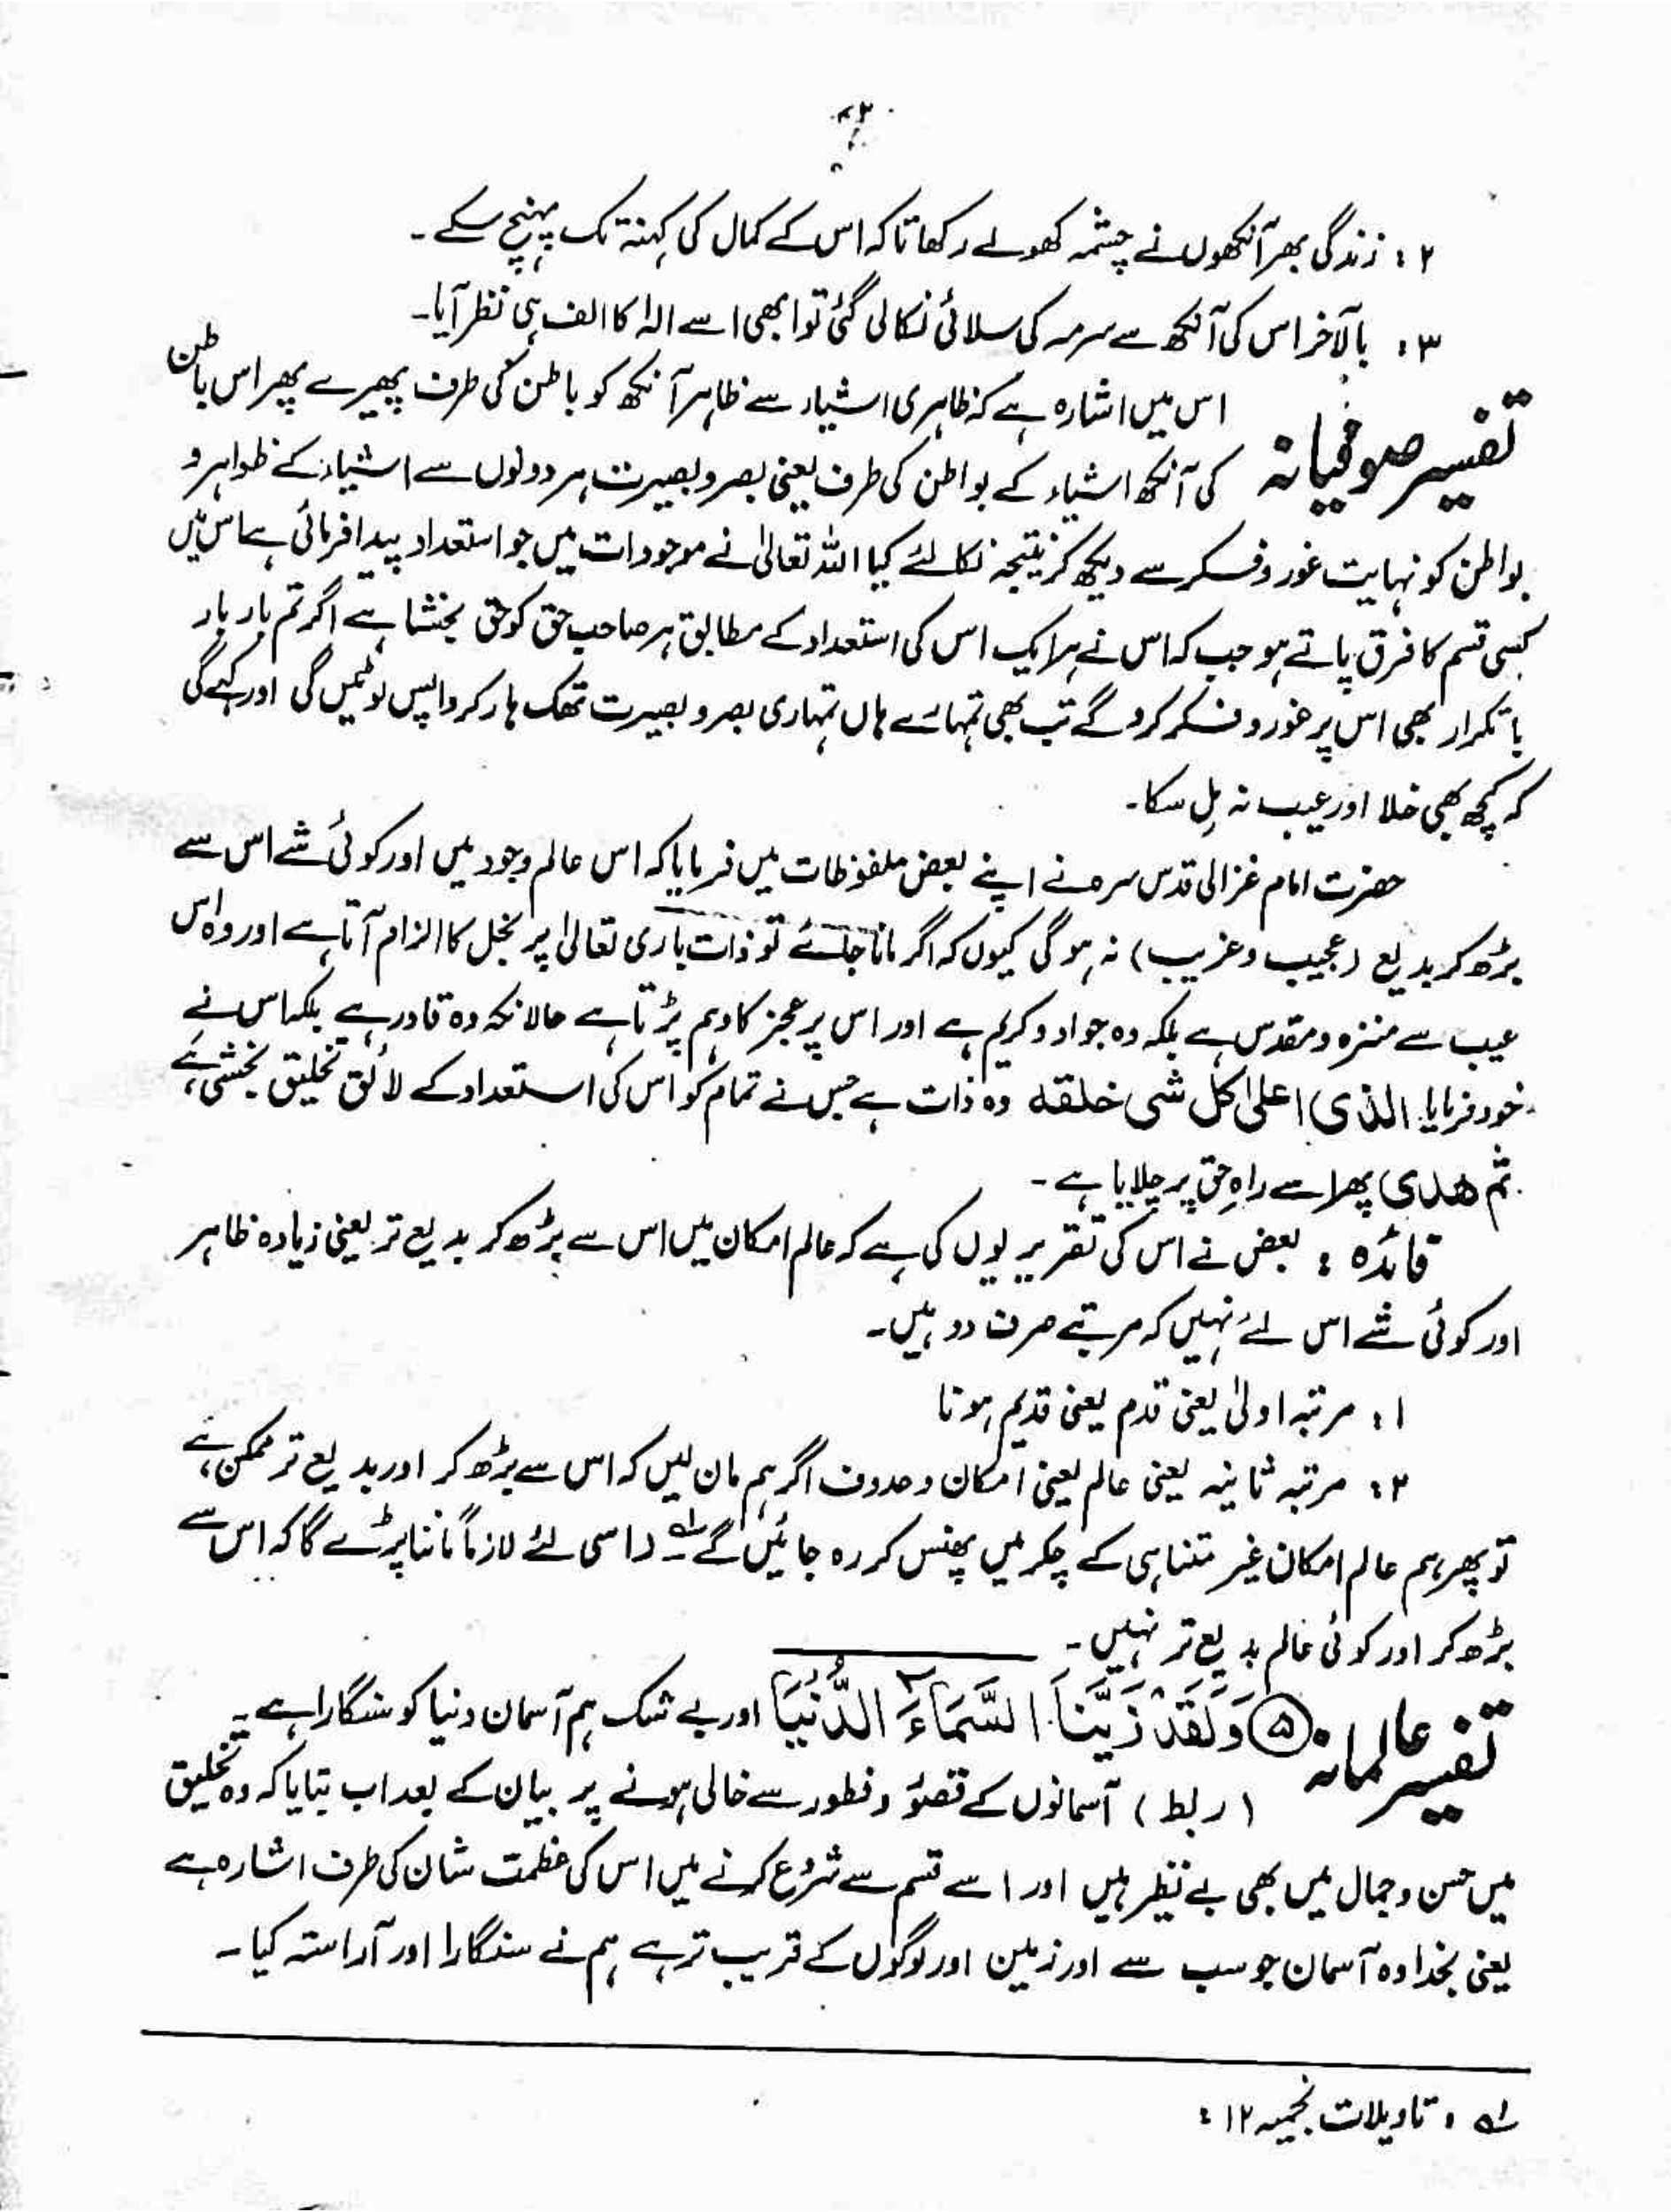 ۲: زندگی بھر آنکھوں نے چشمہ کھولے رکھا تاکہ اس کے کمال کی کہنۃ تک پہنچ سکے۔
۳: بآلاخر اس کی آنکھ سے سرمہ کی سلائی نکالی گئی تو ابھی اسے الٰہ کا الف ہی نظر آیا۔
تفسیر صوفیانہ
اس میں اشارہ ہے کہ ظاہری اشیاء سے ظاہر آنکھ کو باطن کی طرف پھیرے پھر اس باطن
کی آنکھ اشیاء کے بواطن کی طرف یعنی بصر و بصیرت ہر دونوں سے اشیاء کے ظواہر و
بواطن کو نہایت غور و فکر سے دیکھ کر نتیجہ نکالئے کیا اللہ تعالیٰ نے موجودات میں جو استعداد پیدا فرمائی ہے اس میں
کسی قسم کا فرق پاتے ہو جب کہ اس نے ہر ایک اس کی استعداد کے مطابق ہر صاحب حق کو حق بخشا ہے اگر تم بار بار
با تکرار بھی اس پر غور و فکر کرو گے تب بھی تمہارے ہاں تمہاری بصر و بصیرت تھک ہار کر واپس لوٹیں گی اور کہے گی
کہ کچھ بھی خلا اور عیب نہ مِل سکا۔
حضرت امام غزالی قدس سرہ نے اپنے بعض ملفوظات میں فرمایا کہ اس عالم وجود میں اور کوئی شے اس سے
بڑھ کر بدیع (عجیب و غریب) نہ ہو گی کیوں کہ اگر مانا جائے تو ذات باری تعالیٰ پر بخل کا الزام آتا ہے اور وہ اس
عیب سے منزہ و مقدس ہے بلکہ وہ جواد و کریم ہے اور اس پر عجز کا وہم پڑتا ہے حالانکہ وہ قادر ہے بلکہ اس نے
خود فرمایا الذی اعلیٰ کل شی خلقه وہ ذات ہے جس نے تمام کو اس کی استعداد کے لائق تخلیق بخشی ہے
ثم ھدی پھر اسے راہِ حق پر چلایا ہے۔
فائدہ: بعض نے اس کی تقریر یوں کی ہے کہ عالم امکان میں اس سے بڑھ کر بدیع تر یعنی زیادہ ظاہر
اور کوئی شے اس لئے نہیں کہ مرتبے صرف دو ہیں۔
۱: مرتبہ اولیٰ یعنی قدم یعنی قدیم ہونا
۲: مرتبہ ثانیہ یعنی عالم یعنی امکان و حدوث اگر ہم مان لیں کہ اس سے بڑھ کر اور بدیع تر ممکن ہے
تو پھر ہم عالم امکان غیر متناہی کے چکر میں پھنس کر رہ جائیں گے لہ (اسی لئے لازماً ماننا پڑے گا کہ اس سے
بڑھ کر اور کوئی عالم بدیع تر نہیں۔
تفسیر عالمانہ
۵ وَلَقَدْ زَيَّنَّا السَّمَآءَ الدُّنْيَا اور بے شک ہم آسمان دنیا کو سنگارا ہے۔
(ربط) آسمانوں کے قصور و فطور سے خالی ہونے پر بیان کے بعد اب بتایا کہ وہ تخلیق
میں حسن و جمال میں بھی بے نظیر ہیں اور اسے قسم سے شروع کرنے میں اس کی عظمت شان کی طرف اشارہ ہے
یعنی بخدا وہ آسمان جو سب سے اور زمین اور لوگوں کے قریب تر ہے ہم نے سنگارا اور آراستہ کیا۔
لہ : تاویلات نجمیہ ۱۲ :